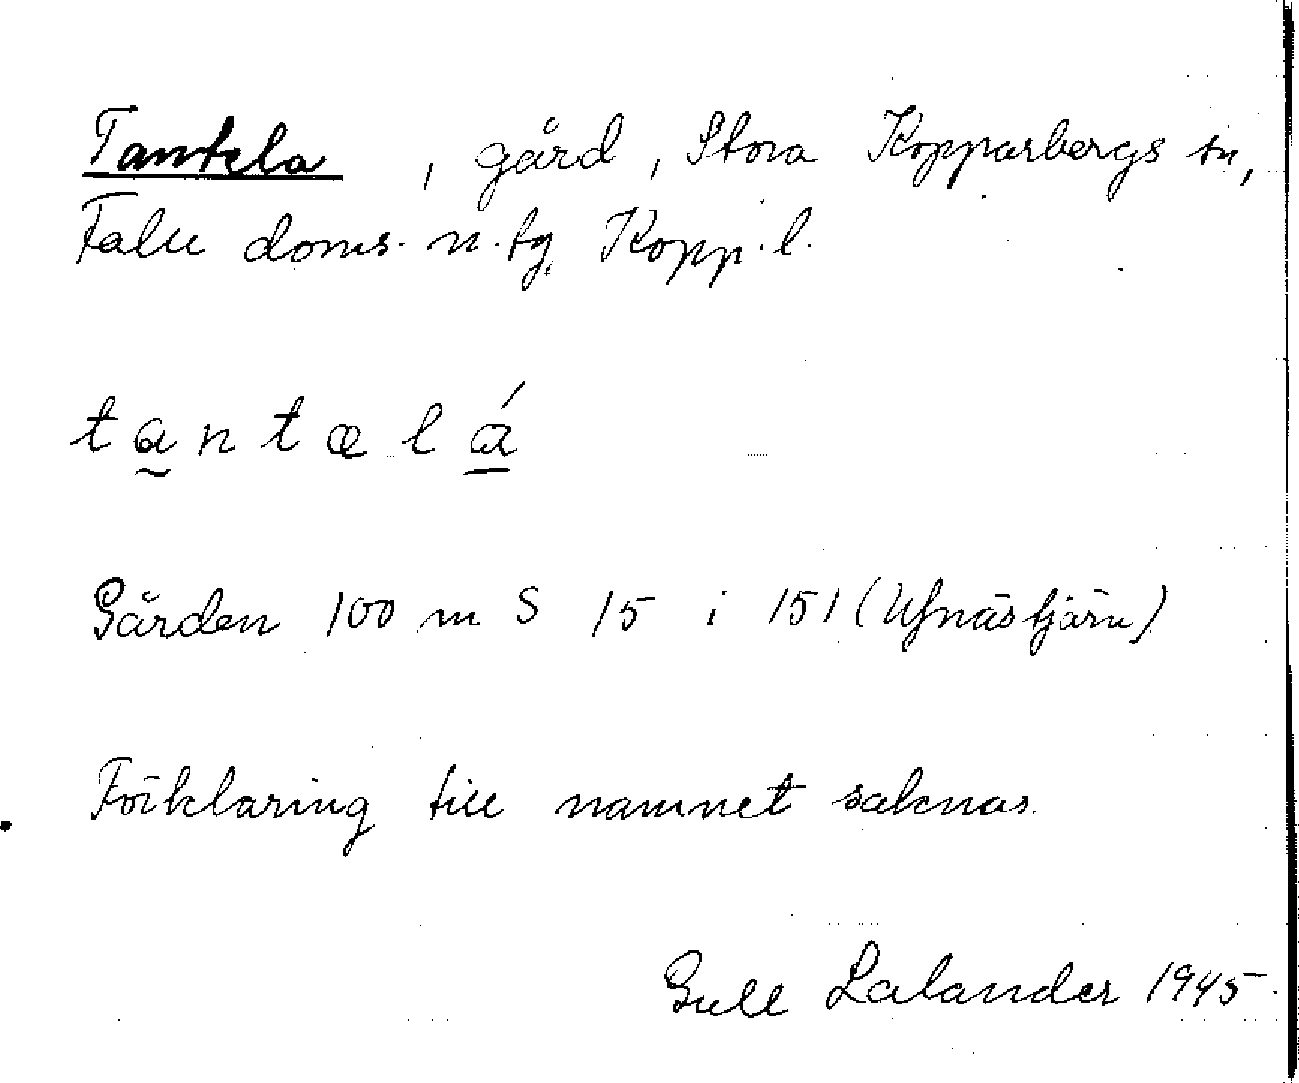 Tantela, gård, Stora Kopparbergs sn,
Falu doms. n. tg, Kopp. l.
t a n t æ l á
Gården 100 m S 15 i 151 (Ufnästjärn)
Förklaring till namnet saknas.
Gull Lalander 1945.